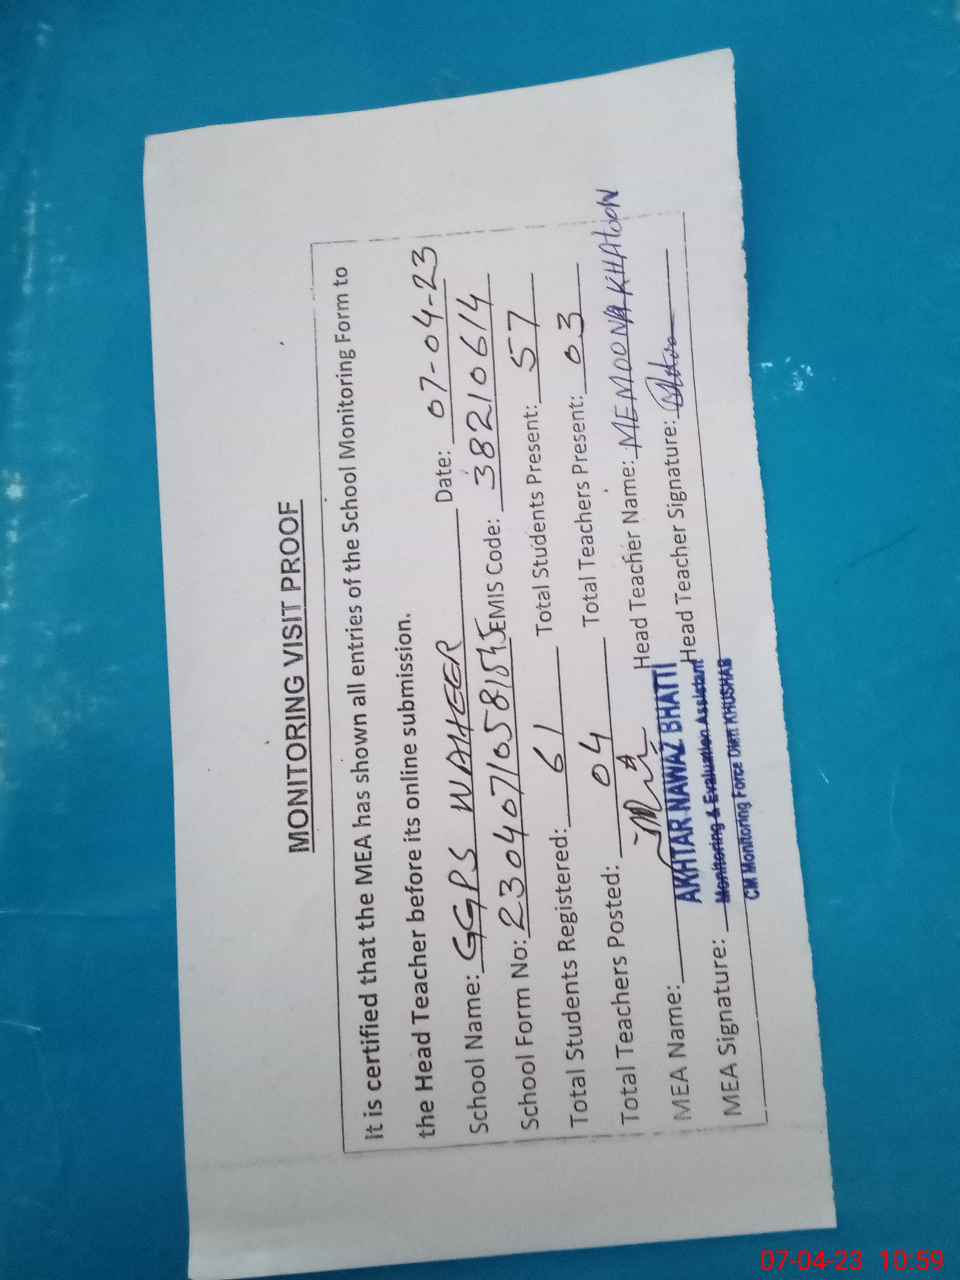 MONITORING VISIT PROOF
It is certified that the MEA has shown all entries of the School Monitoring Form to
the Head Teacher before its online submission.
School Name: GGPS WAHEER Date: 07-04-23
School Form No: EMIS Code: 38210614
Total Students Registered: 61 Total Students Present: 57
Total Teachers Posted: 04 Total Teachers Present: 03
MEA Name: Head Teacher Name: MEMOONA KHATOON
AKHTAR NAWAZ BHATTI
MEA Signature: Head Teacher Signature:
Monitoring & Evaluation Assistant
CM Monitoring Force Distt KHUSHAB
07-04-23 10:59